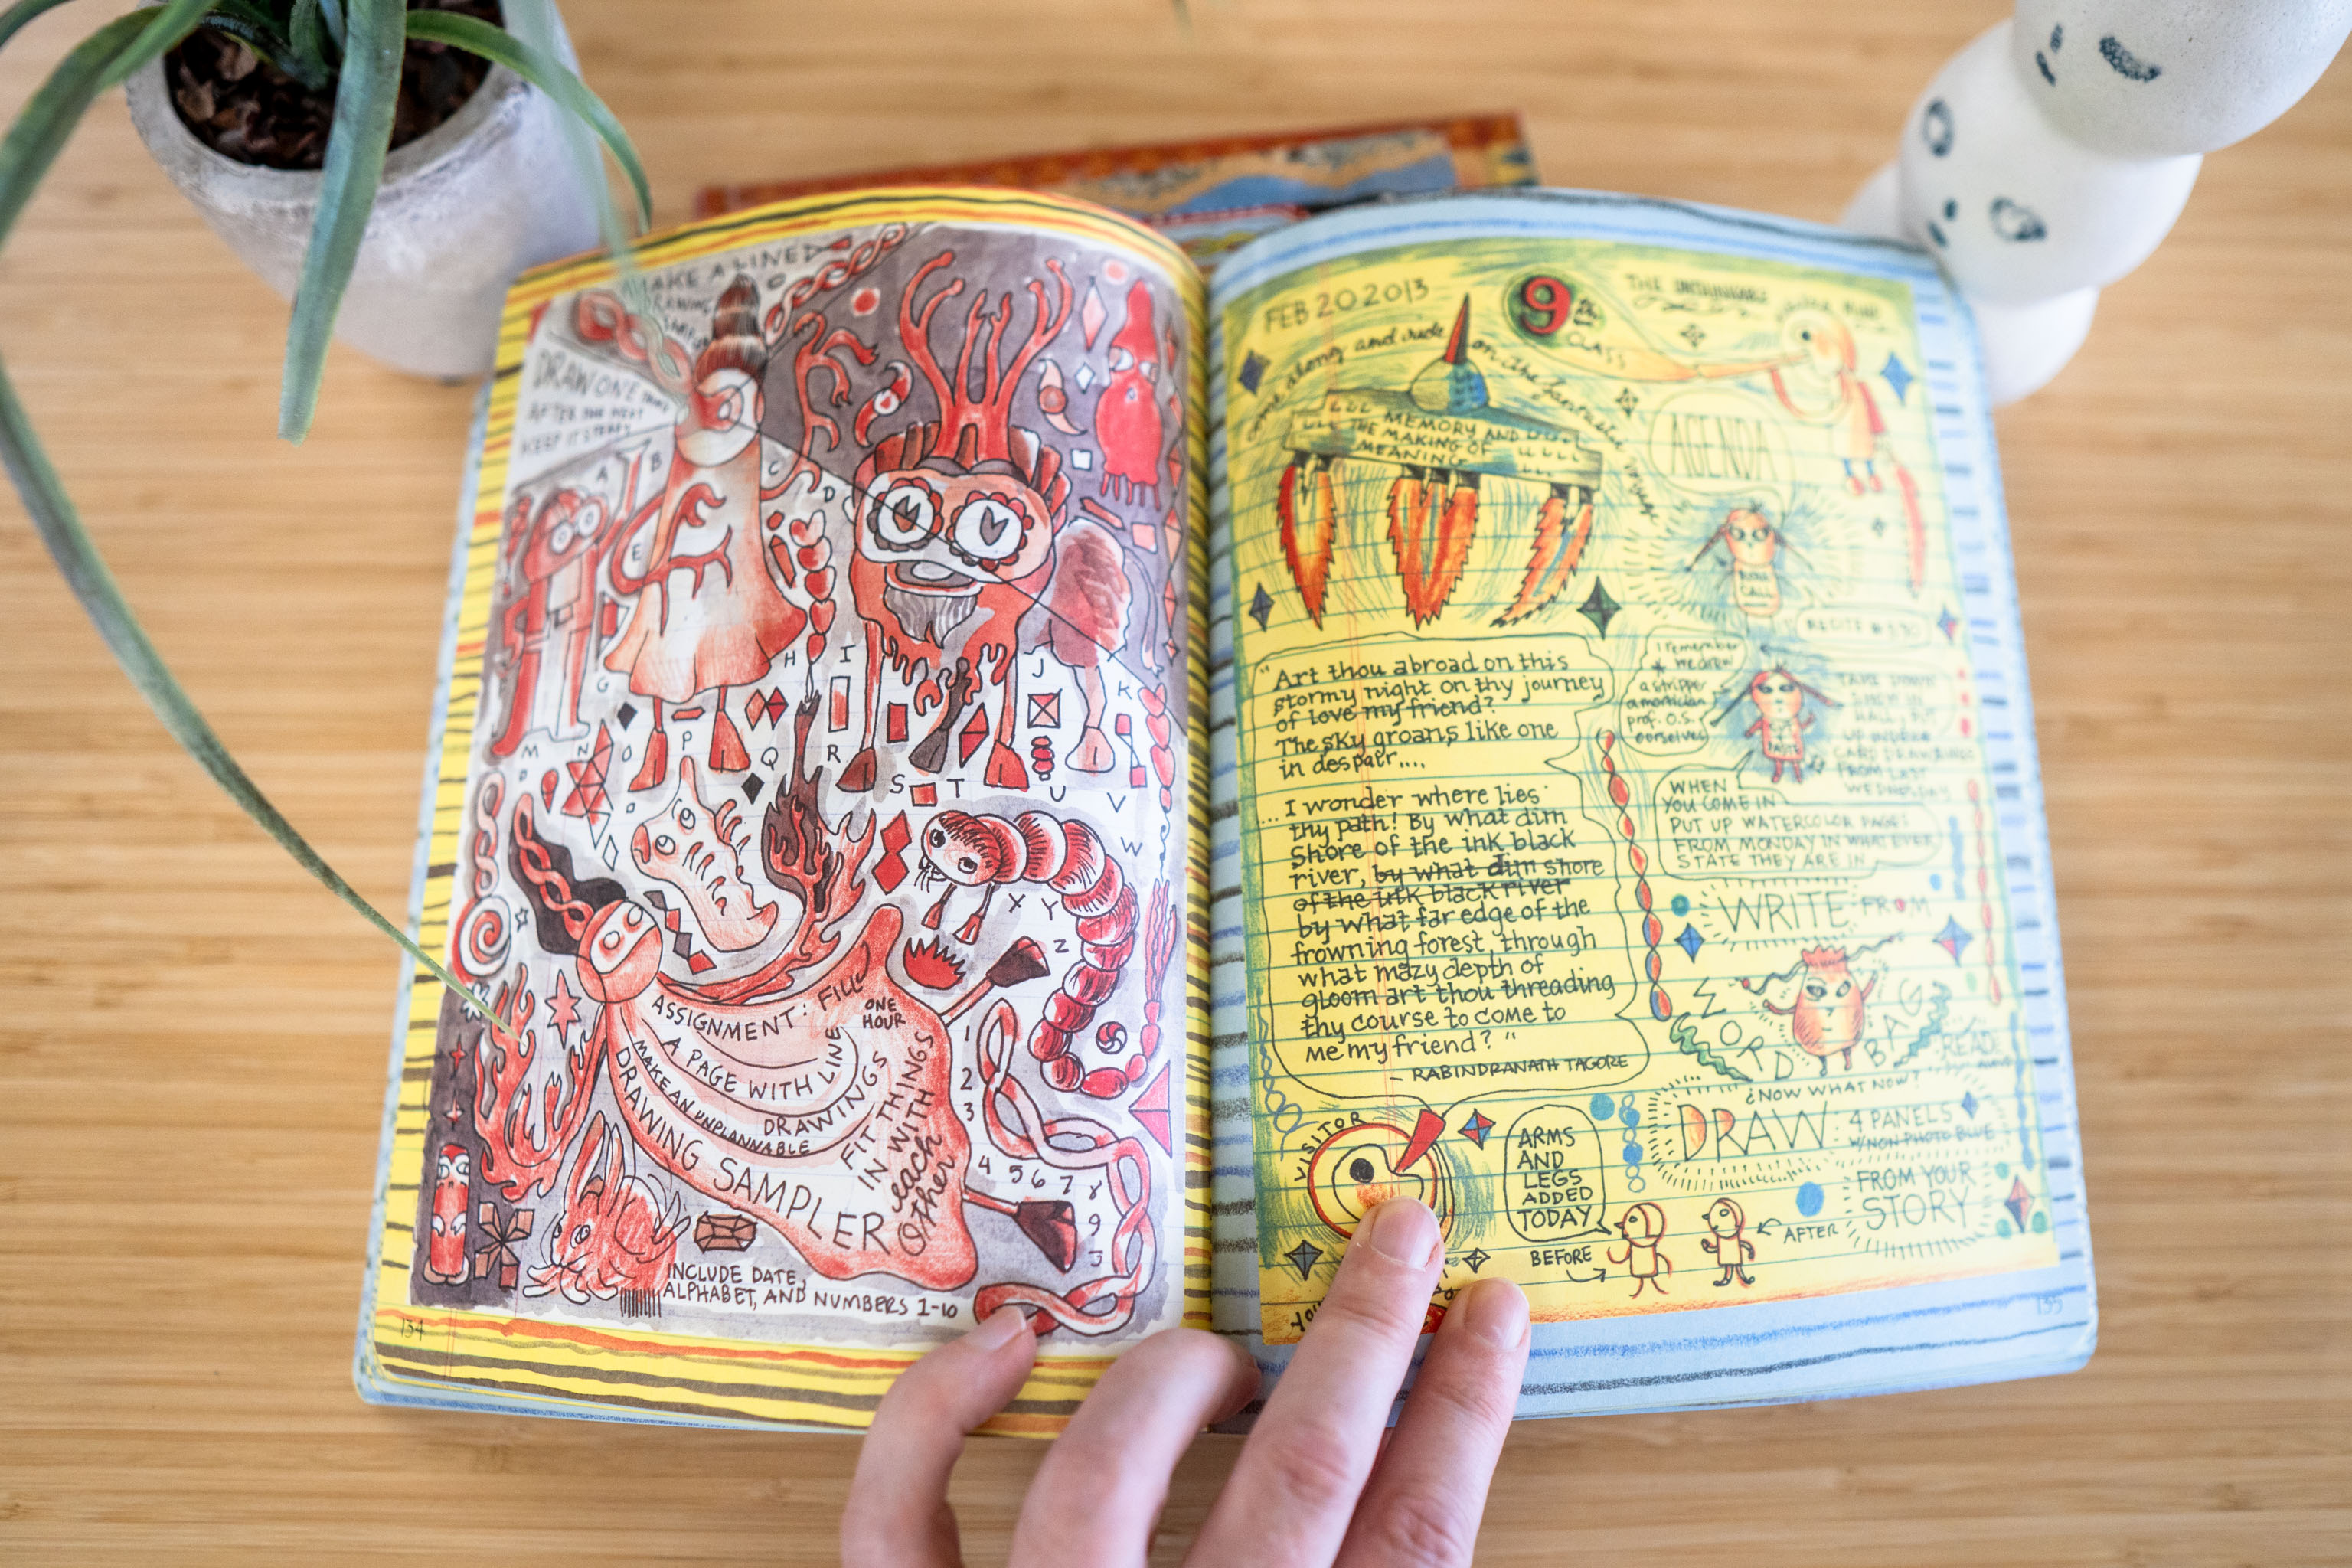 MAKE A LINED
DRAWING
DRAW ONE THING
AFTER THE NEXT
KEEP IT STEADY
A B C D
E
G H I J K
M N O P Q R S T U V W
X Y Z
ASSIGNMENT: FILL
ONE
HOUR
A PAGE WITH LINE
DRAWINGS
MAKE AN UNPLANNABLE
DRAWING SAMPLER
FIT THINGS
IN WITH
each
Other
1
2
3
4 5 6 7 8
9
3
INCLUDE DATE,
ALPHABET, AND NUMBERS 1-10
134
FEB 20 2013
9th
CLASS
THE
come along and ride on the fantastic voyage
MEMORY AND
THE MAKING OF
MEANING
AGENDA
ROLL
CALL
"Art thou abroad on this
stormy night on thy journey
of love my friend?
The sky groans like one
in despair....
...I wonder where lies
thy path! By what dim
shore of the ink black
river, by what dim shore
of the ink black river
by what far edge of the
frowning forest, through
what mazy depth of
gloom art thou threading
thy course to come to
me my friend?"
- RABINDRANATH TAGORE
I remember
we drew
a stripper
a mortician
prof. O.S.
ourselves
UP INDEX
CARD DRAWINGS
FROM LAST
WEDNESDAY
WHEN
YOU COME IN
PUT UP WATERCOLOR PAGES
FROM MONDAY IN WHAT EVER
STATE THEY ARE IN
WRITE FROM
WORD BAG
READ
¿NOW WHAT NOW?
DRAW: 4 PANELS
W/NON PHOTO BLUE
FROM YOUR
STORY
VISITOR
ARMS
AND
LEGS
ADDED
TODAY
BEFORE
AFTER
135